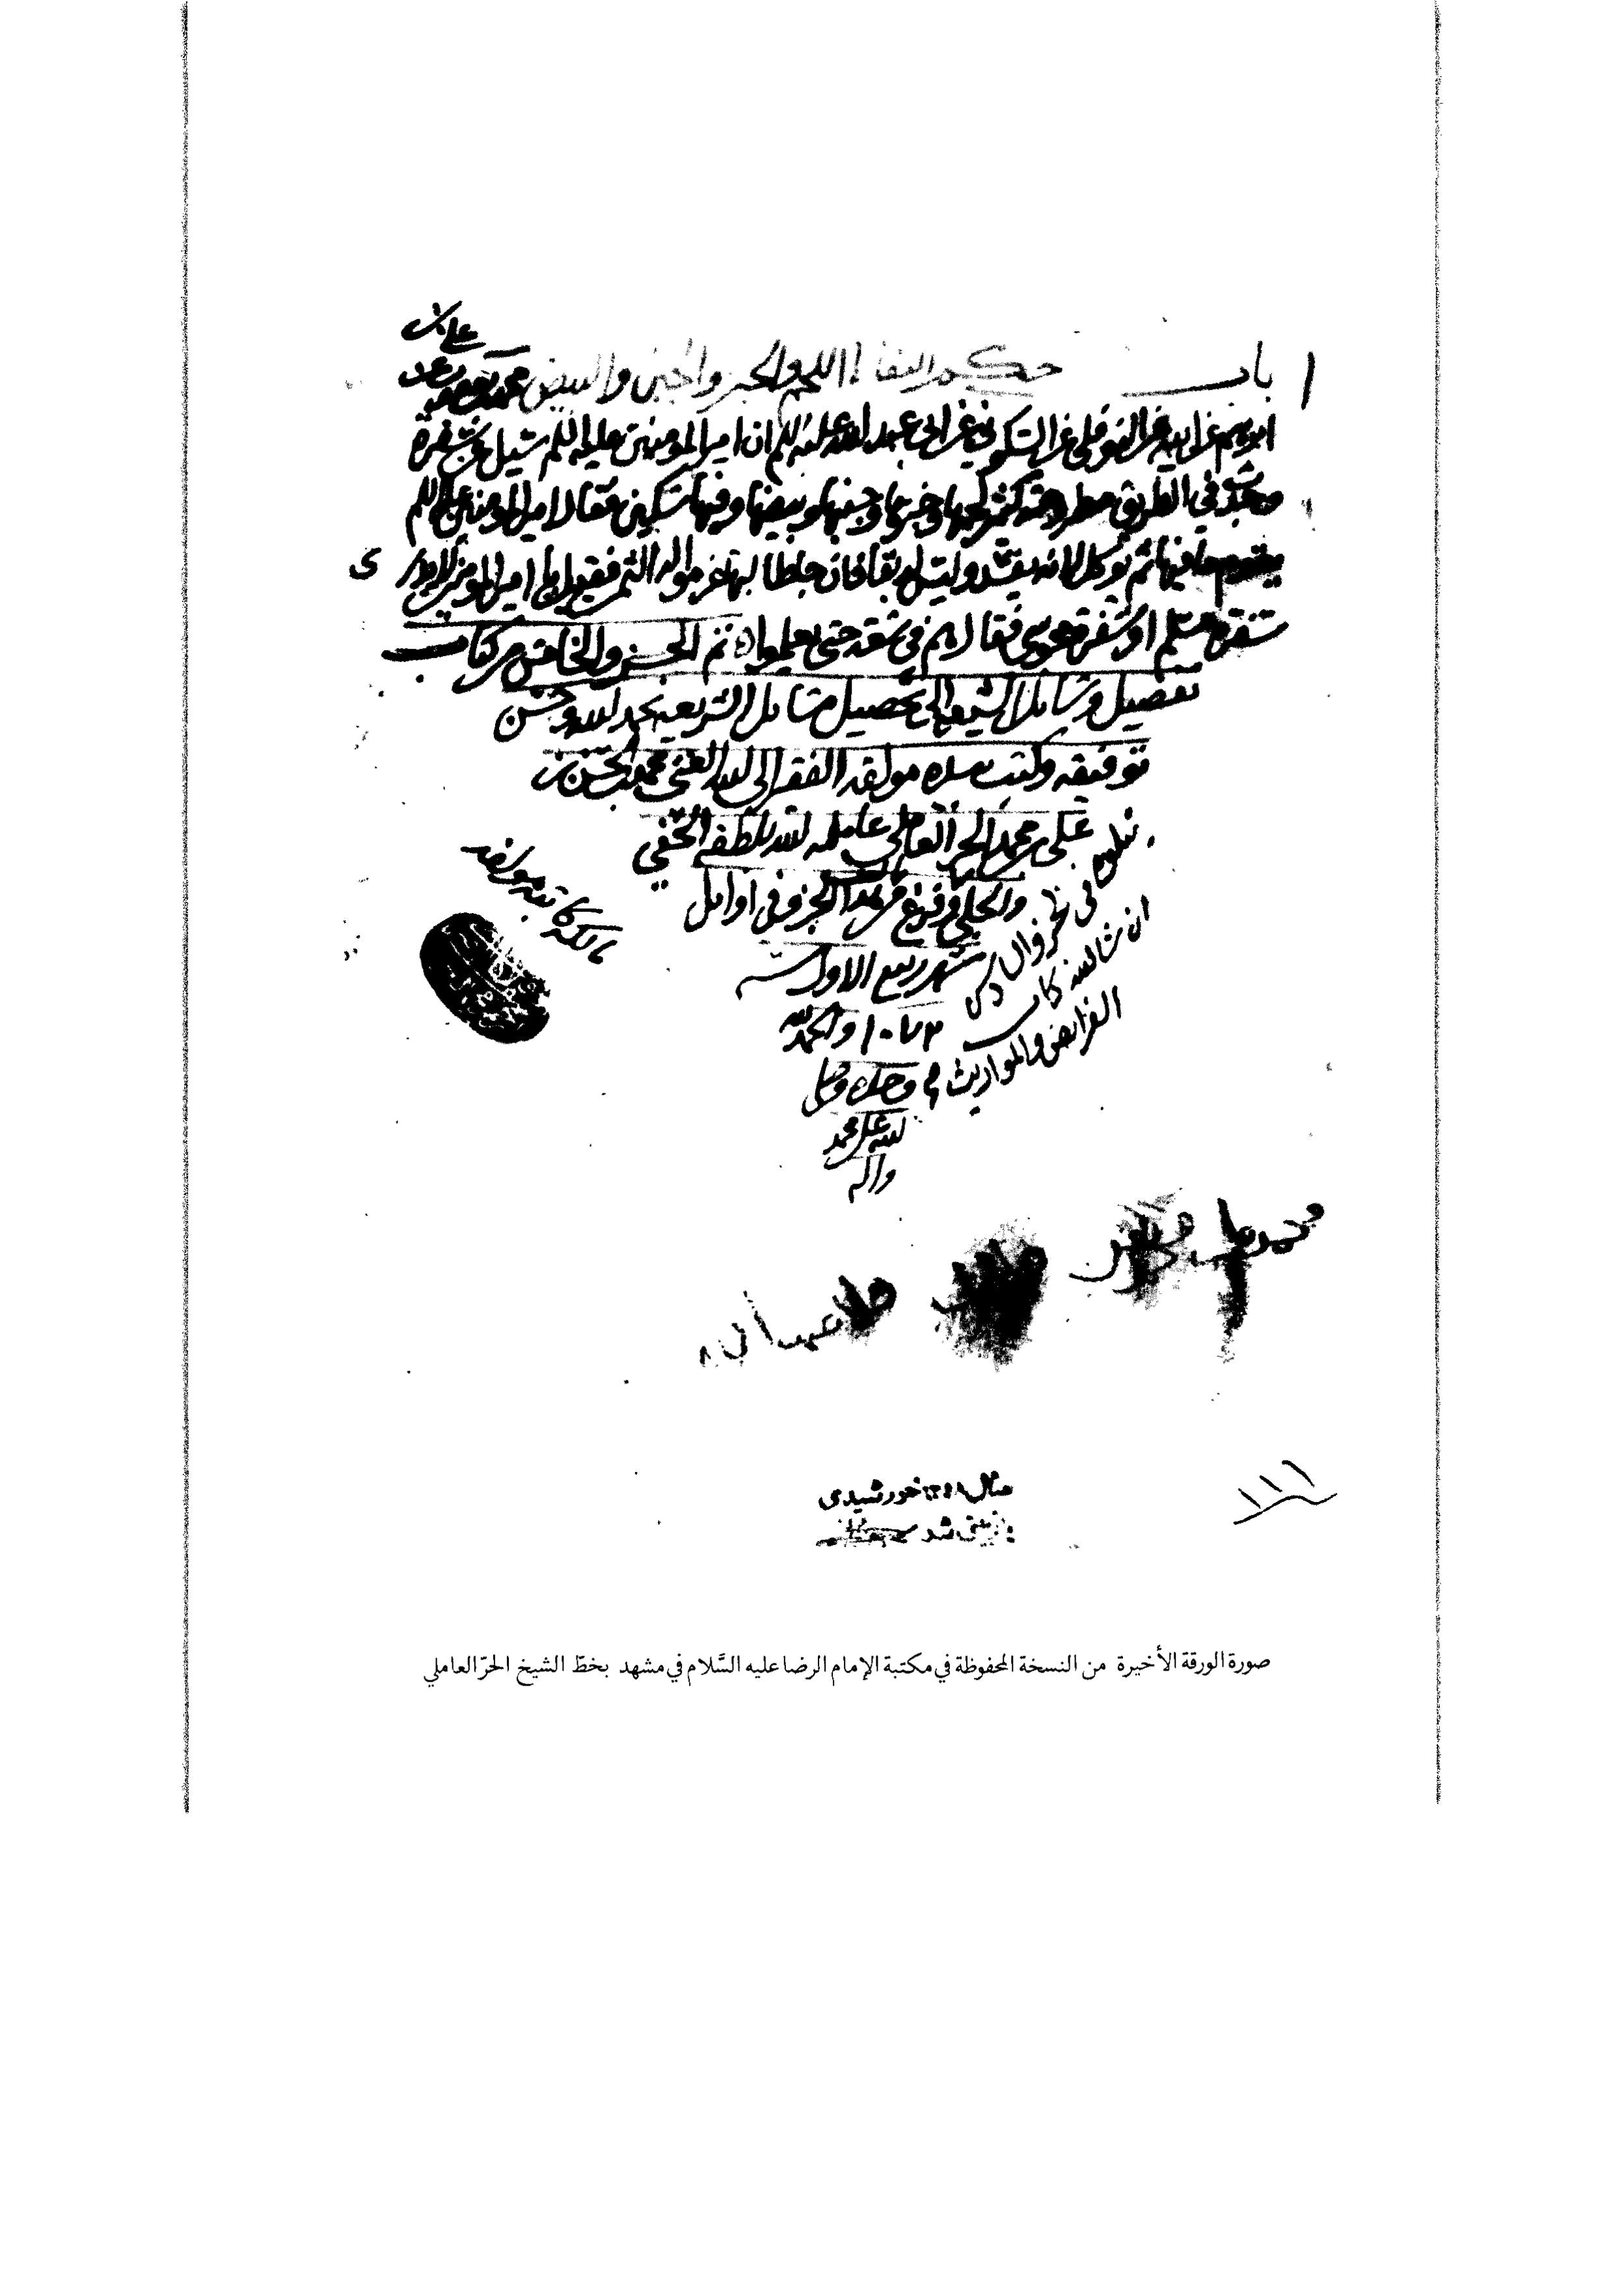 باب حكم التقاط اللحم والخبز والجبن والبيض محمد بن يعقوب عن علي بن
ابرهيم عن ابيه عن النوفلي عن السكوني عن ابي عبد الله عليه السلم ان امير المؤمنين عليه السلم سئل عن سفرة
وجدت في الطريق مطروحة كثير لحمها وخبزها وجبنها وبيضها وفيها سكين فقال امير المؤمنين عليه السلم
يقوم ما فيها ثم يؤكل لانه يفسد وليس له بقا فان جا طالبها غرموا له الثمن فقيل يا امير المؤمنين لا يدرى
سفرة مسلم او سفرة مجوسي فقال هم في سعة حتى يعلموا تم الجزء الخامس من كتاب
تفصيل وسائل الشيعة الى تحصيل مسائل الشريعة بحمد الله وحسن
توفيقه وكتب بيده مؤلفه الفقير الى الله الغني محمد بن الحسن بن
علي بن محمد الحر العاملي عامله الله بلطفه الخفي
والجلي وفرغ من هذا الجزء في اوايل
شهر ربيع الاول سنة
١٠٧٢ والحمد لله
وحده وصلى
الله على محمد
واله
يتلوه في
ان شا الله كتاب
الفرايض والمواريث
مالكه كاتبه مؤلفه
سال ١٣٤٨ خورشيدى
بازبينى شد
صورة الورقة الأخيرة من النسخة المحفوظة في مكتبة الإمام الرضا عليه السَّلام في مشهد بخطّ الشيخ الحرّ العاملي